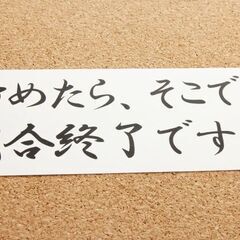 めたら、そこで
合終了です